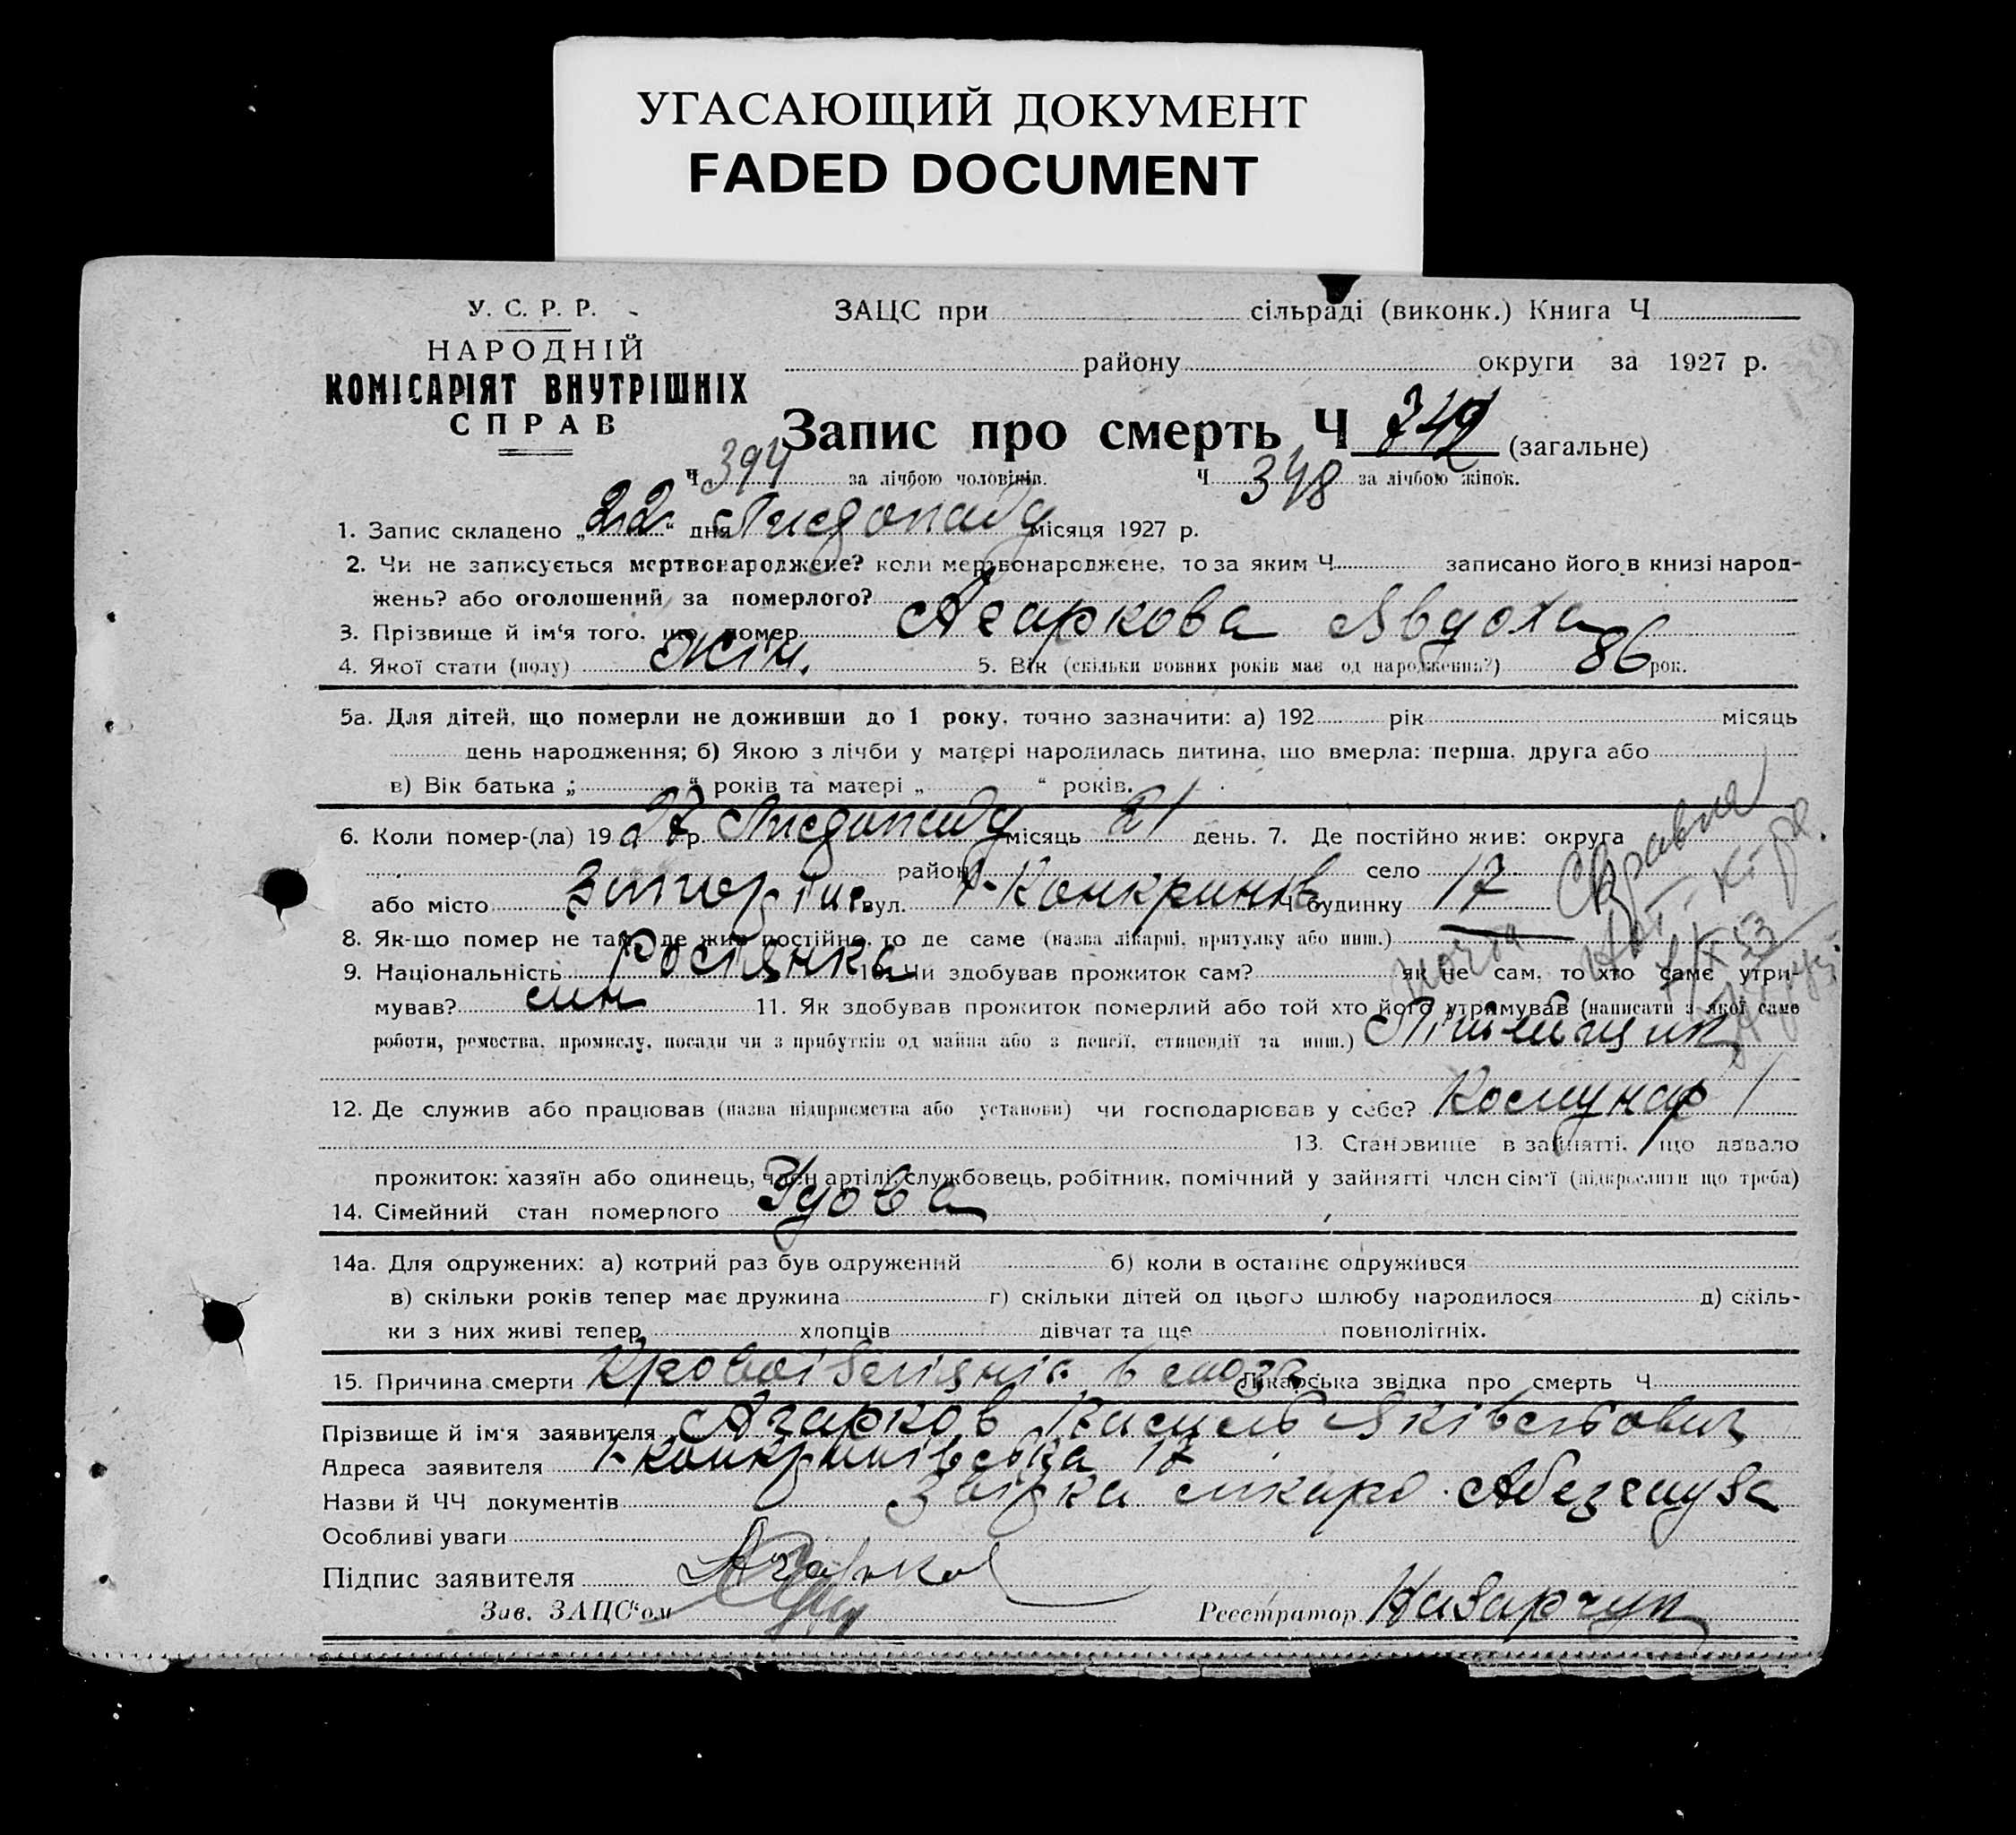 УГАСАЮЩИЙ ДОКУМЕНТ
FADED DOCUMENT
У. С. Р. Р.
НАРОДНІЙ
КОМІСАРІЯТ ВНУТРІШНІХ
СПРАВ
ЗАЦС при сільраді (виконк.) Книга Ч
району округи за 1927 р.
Запис про смерть Ч 742 (загальне)
Ч 394 за лічбою чоловіків. Ч 348 за лічбою жінок.
1. Запис складено „22“ дня Листопаду місяця 1927 р.
2. Чи не записується мертвонароджене? коли мертвонароджене, то за яким Ч записано його в книзі народ-
жень? або оголошений за померлого?
3. Прізвище й ім'я того, що помер Азаркова Явдоха
4. Якої стати (полу) жін. 5. Вік (скільки повних років має од народження?) 86 рок.
5а. Для дітей, що померли не доживши до 1 року, точно зазначити: а) 192 рік місяць
день народження; б) Якою з лічби у матері народилась дитина, що вмерла: перша, друга або
в) Вік батька „ “ років та матері „ “ років.
6. Коли помер-(ла) 1927 р. Листопаду місяць 21 день. 7. Де постійно жив: округа
район село
або місто вул. Ч будинку 17
8. Як-що помер не там, де жив постійно, то де саме (назва лікарні, притулку або инш.)
9. Національність Росіянка 10. Чи здобував прожиток сам? як не сам, то хто саме утри-
мував? син 11. Як здобував прожиток померлий або той хто його утримував (написати з якої саме
роботи, ремества, промислу, посади чи з прибутків од майна або з пенсії, стипендії та инш.)
12. Де служив або працював (назва підприємства або установи) чи господарював у себе? Комунар
13. Становище в зайнятті, що давало
прожиток: хазяїн або одинець, член артілі, службовець, робітник, помічний у зайнятті член сім'ї (підкреслити що треба)
14. Сімейний стан померлого Удова
14а. Для одружених: а) котрий раз був одружений б) коли в останнє одружився
в) скільки років тепер має дружина г) скільки дітей од цього шлюбу народилося д) скіль-
ки з них живі тепер хлопців дівчат та ще повнолітніх.
15. Причина смерти в мозок Лікарська звідка про смерть Ч
Прізвище й ім'я заявителя Азарков Василь
Адреса заявителя 17
Назви й ЧЧ документів Звідка лікаря
Особливі уваги
Підпис заявителя Азарков
Зав. ЗАЦС'ом Реєстратор Назарчук